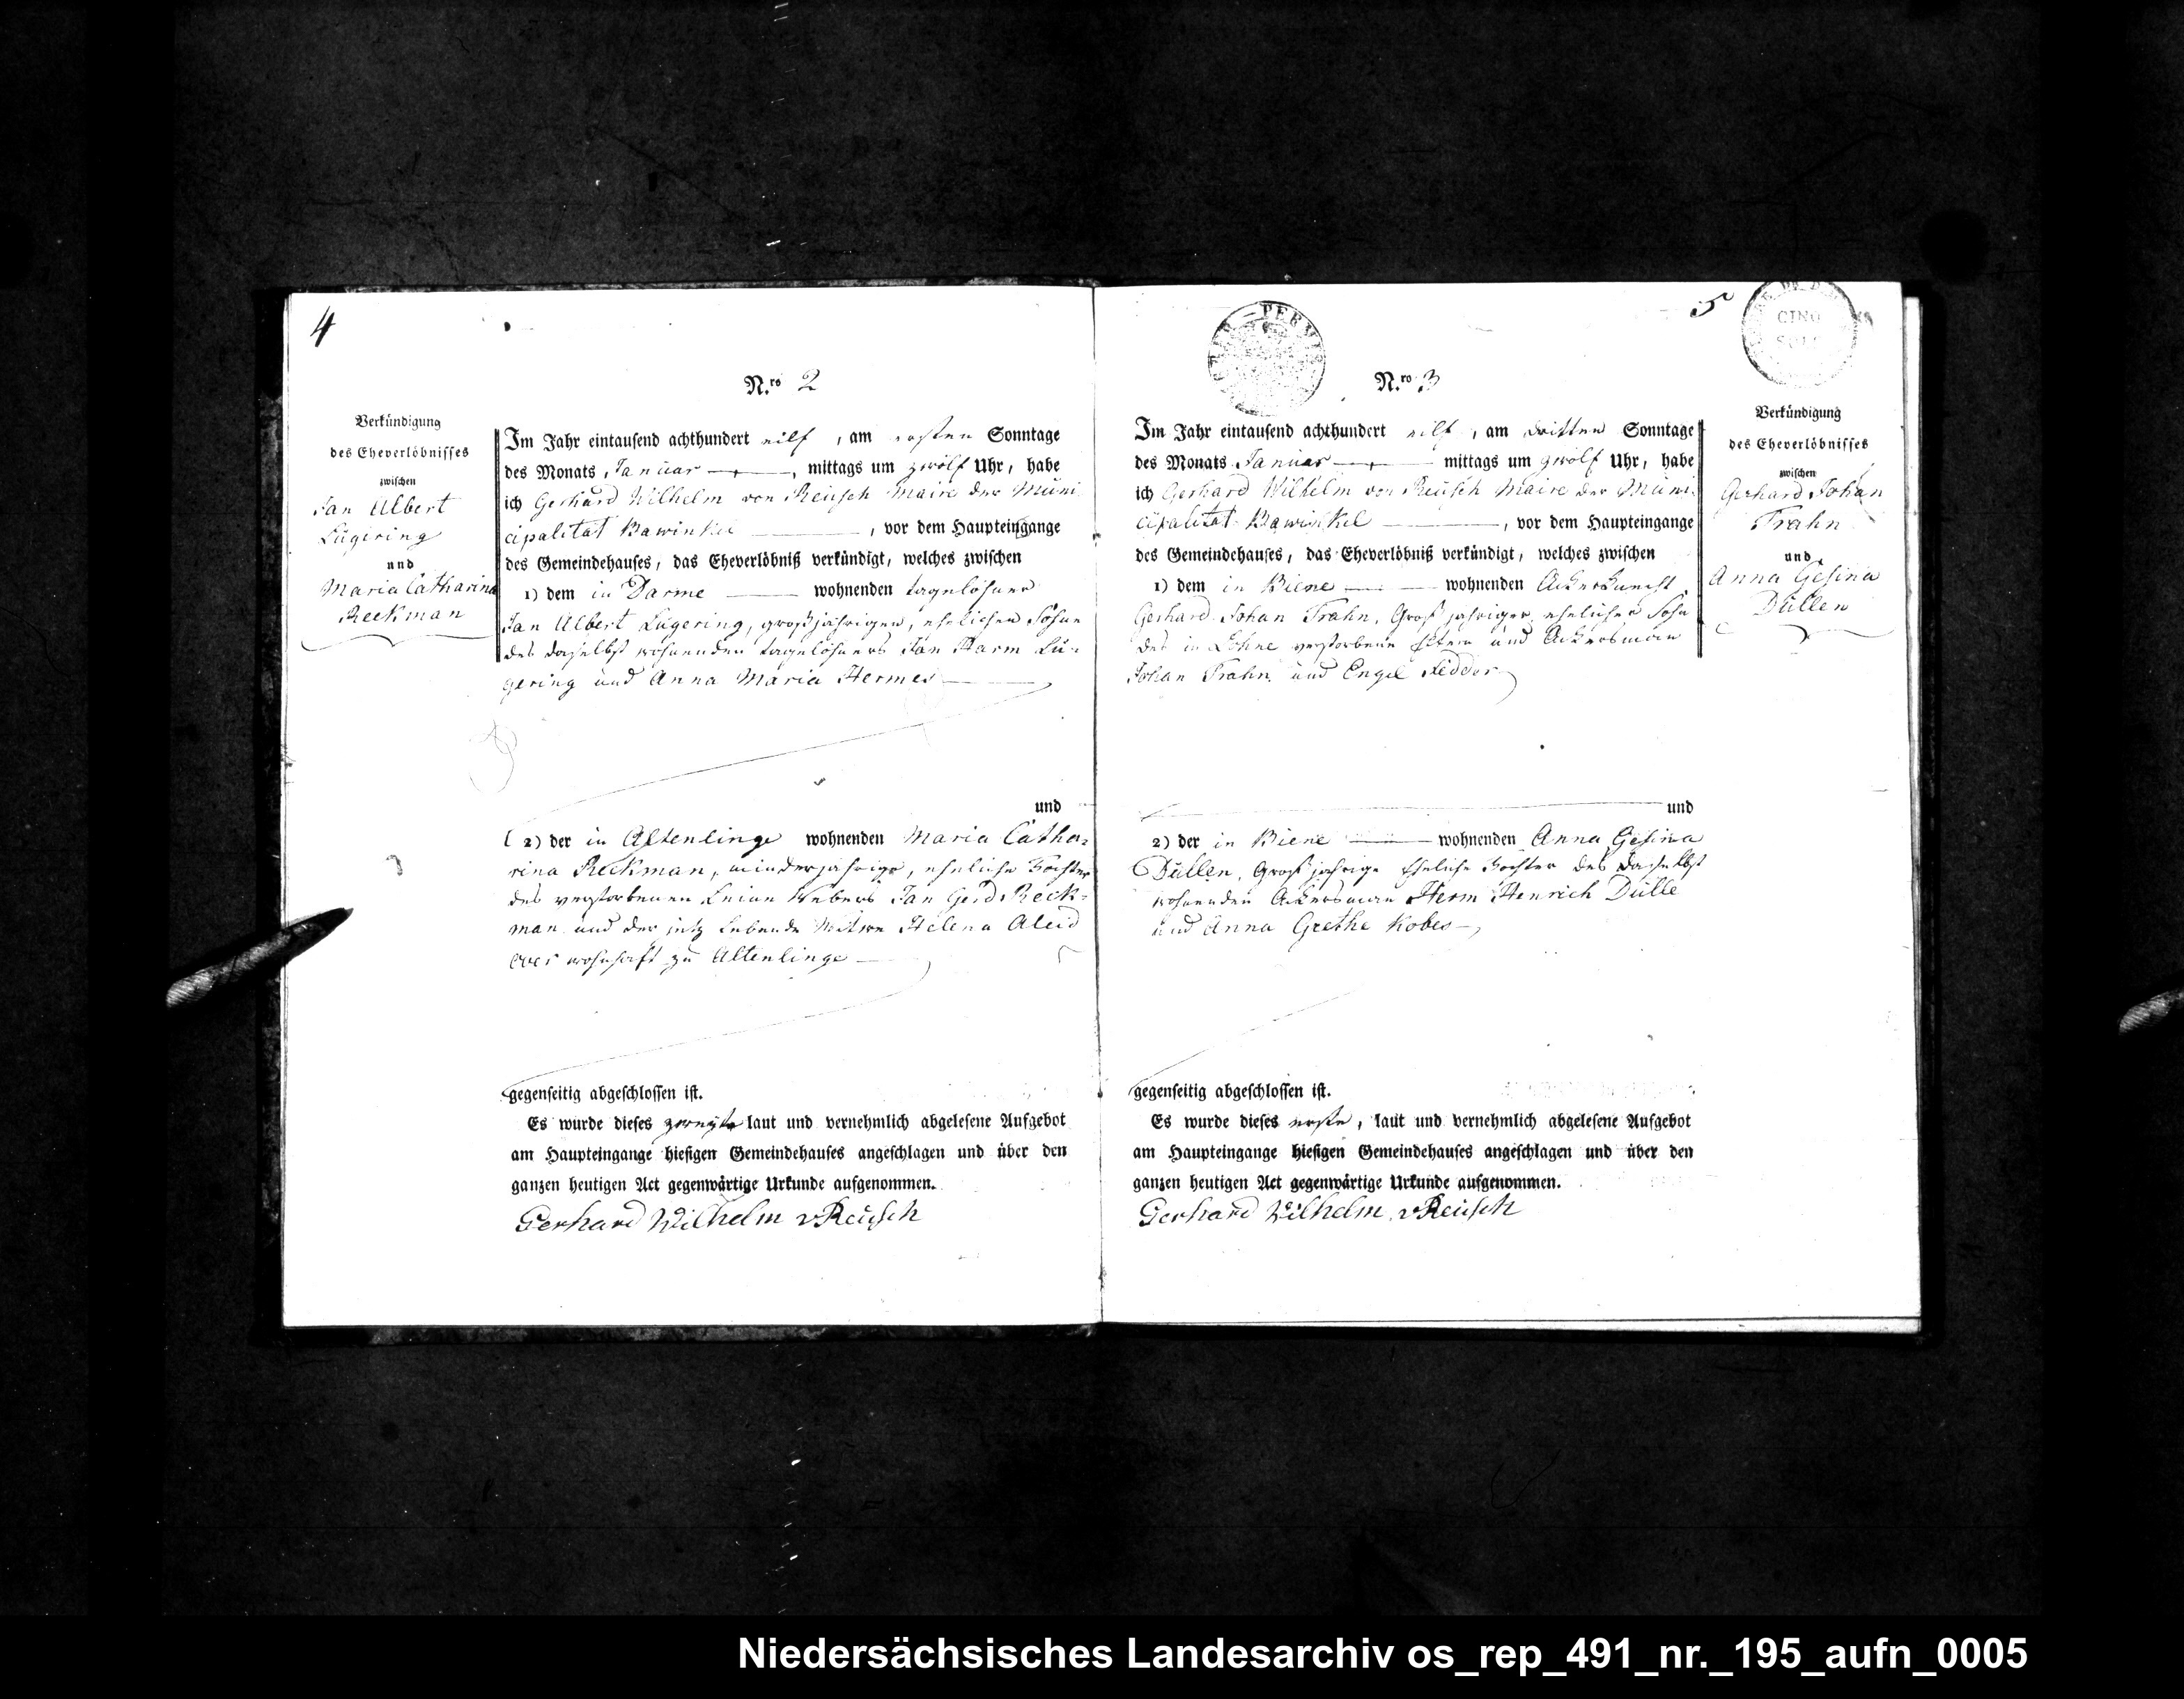 4
N.ro 2
Verkündigung
des Eheverlöbnisses
zwischen
Jan Albert
Lügering
und
Maria Catharina
Reekman
Im Jahr eintausend achthundert eilf, am ersten Sonntage
des Monats Januar, mittags um zwölf Uhr, habe
ich Gerhard Wilhelm von Reusch Maire der Muni
cipalitat Bawinkel, vor dem Haupteingange
des Gemeindehauses, das Eheverlöbniß verkündigt, welches zwischen
1) dem in Darme wohnenden tagelöhner
Jan Albert Lügering, großjährigen, ehelichen Sohne
des daselbst wohnenden tagelöhners Jan Harm Lü-
gering und Anna Maria Hermes
und
2) der in Altenlinge wohnenden Maria Catha-
rina Reekman, minderjährige, eheliche Tochter
des verstorbenen Leine Webers Jan Gerd Reek-
man und der jetz Lebende Witwe Helena Aleid
wohnhaft zu Altenlinge
gegenseitig abgeschlossen ist.
Es wurde dieses zweyte laut und vernehmlich abgelesene Aufgebot
am Haupteingange hiesigen Gemeindehauses angeschlagen und über den
ganzen heutigen Act gegenwärtige Urkunde aufgenommen.
Gerhard Wilhelm v Reusch
5
CINQ
N.ro 3
Im Jahr eintausend achthundert eilf, am dritten Sonntage
des Monats Januar mittags um zwölf Uhr, habe
ich Gerhard Wilhelm von Reusch Maire der Muni-
cipalitat Bawinkel, vor dem Haupteingange
des Gemeindehauses, das Eheverlöbniß verkündigt, welches zwischen
1) dem in Biene wohnenden Ackersknecht
Gerhard Johan Trahn, Groß jähriger ehelicher Sohn
des in Lohne verstorbene und Ackersman
Johan Trahn und Engel Fiddor
und
2) der in Biene wohnenden Anna Gesina
Düllen, Groß jährige Eheliche Tochter des daselbst
wohnenden Ackersman Herm Henrich Dülle
und Anna Grethe Kobes
gegenseitig abgeschlossen ist.
Es wurde dieses erste, laut und vernehmlich abgelesene Aufgebot
am Haupteingange hiesigen Gemeindehauses angeschlagen und über den
ganzen heutigen Act gegenwärtige Urkunde aufgenommen.
Gerhard Wilhelm v Reusch
Verkündigung
des Eheverlöbnisses
zwischen
Gerhard Johan
Trahn
und
Anna Gesina
Düllen
Niedersächsisches Landesarchiv os_rep_491_nr._195_aufn_0005